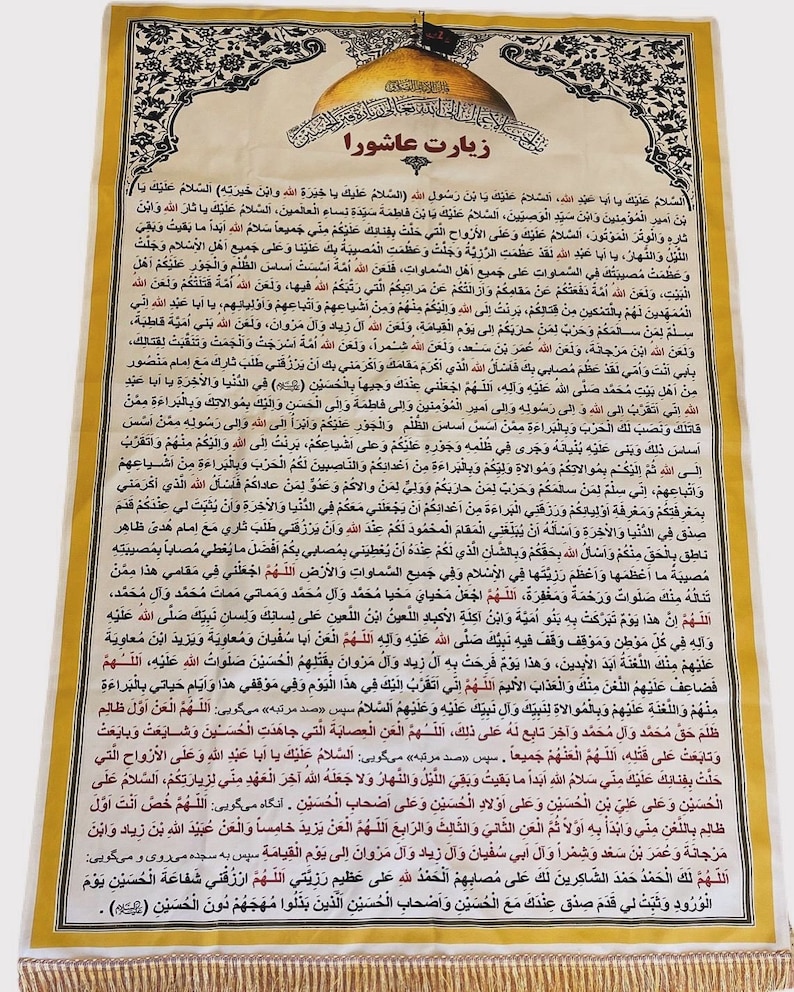 زیارت عاشورا
اَلسَّلامُ عَلَيْكَ يا اَبا عَبْدِ اللهِ، اَلسَّلامُ عَلَيْكَ يَا بْنَ رَسُولِ اللهِ (اَلسَّلامُ عَلَيْكَ يا خِيَرَةَ اللهِ وابْنَ خِيَرَتِهِ) اَلسَّلامُ عَلَيْكَ يَا
بْنَ اَميرِ الْمُؤْمِنينَ وَابْنَ سَيِّدِ الْوَصِيّينَ، اَلسَّلامُ عَلَيْكَ يَا بْنَ فاطِمَةَ سَيِّدَةِ نِساءِ الْعالَمينَ، اَلسَّلامُ عَلَيْكَ يا ثارَ اللهِ وَابْنَ
ثارِهِ وَالْوِتْرَ الْمَوْتُورَ، اَلسَّلامُ عَلَيْكَ وَعَلَى الْاَرْواحِ الَّتي حَلَّتْ بِفِنائِكَ عَلَيْكُمْ مِنّي جَميعاً سَلامُ اللهِ اَبَداً ما بَقيتُ وَبَقِيَ
اللَّيْلُ وَالنَّهارُ، يا اَبا عَبْدِ اللهِ لَقَدْ عَظُمَتِ الرَّزِيَّةُ وَجَلَّتْ وَعَظُمَتِ الْمُصيبَةُ بِكَ عَلَيْنا وَعَلى جَميعِ اَهْلِ الْاِسْلامِ وَجَلَّتْ
وَعَظُمَتْ مُصيبَتُكَ فِي السَّماواتِ عَلى جَميعِ اَهْلِ السَّماواتِ، فَلَعَنَ اللهُ اُمَّةً اَسَّسَتْ اَساسَ الظُّلْمِ وَالْجَوْرِ عَلَيْكُمْ اَهْلَ
الْبَيْتِ، وَلَعَنَ اللهُ اُمَّةً دَفَعَتْكُمْ عَنْ مَقامِكُمْ وَاَزالَتْكُمْ عَنْ مَراتِبِكُمُ الَّتي رَتَّبَكُمُ اللهُ فيها، وَلَعَنَ اللهُ اُمَّةً قَتَلَتْكُمْ وَلَعَنَ اللهُ
الْمُمَهِّدينَ لَهُمْ بِالتَّمْكينِ مِنْ قِتالِكُمْ، بَرِئْتُ اِلَى اللهِ وَاِلَيْكُمْ مِنْهُمْ وَمِنْ اَشْياعِهِمْ وَاَتْباعِهِمْ وَاَوْلِيائِهِمْ، يا اَبا عَبْدِ اللهِ اِنّي
سِلْمٌ لِمَنْ سالَمَكُمْ وَحَرْبٌ لِمَنْ حارَبَكُمْ اِلى يَوْمِ الْقِيامَةِ، وَلَعَنَ اللهُ آلَ زِياد وَآلَ مَرْوانَ، وَلَعَنَ اللهُ بَني اُمَيَّةَ قاطِبَةً،
وَلَعَنَ اللهُ ابْنَ مَرْجانَةَ، وَلَعَنَ اللهُ عُمَرَ بْنَ سَعْد، وَلَعَنَ اللهُ شِمْراً، وَلَعَنَ اللهُ اُمَّةً اَسْرَجَتْ وَاَلْجَمَتْ وَتَنَقَّبَتْ لِقِتالِكَ،
بِاَبي اَنْتَ وَاُمّي لَقَدْ عَظُمَ مُصابي بِكَ فَاَسْأَلُ اللهَ الَّذي اَكْرَمَ مَقامَكَ وَاَكْرَمَني بِكَ اَنْ يَرْزُقَني طَلَبَ ثارِكَ مَعَ اِمام مَنْصُور
مِنْ اَهْلِ بَيْتِ مُحَمَّد صَلَّى اللهُ عَلَيْهِ وَآلِهِ، اَللّهُمَّ اجْعَلْني عِنْدَكَ وَجيهاً بِالْحُسَيْنِ (علیه‌السلام) فِي الدُّنْيا وَالْاخِرَةِ يا اَبا عَبْدِ
اللهِ اِنّي اَتَقَرَّبُ اِلى اللهِ وَ اِلى رَسُولِهِ وَاِلى اَميرِ الْمُؤْمِنينَ وَاِلى فاطِمَةَ وَاِلَى الْحَسَنِ وَاِلَيْكَ بِمُوالاتِكَ وَبِالْبَراءَةِ مِمَّنْ
قاتَلَكَ وَنَصَبَ لَكَ الْحَرْبَ وَبِالْبَراءَةِ مِمَّنْ اَسَسَ اَساسَ الظُّلْمِ وَالْجَوْرِ عَلَيْكُمْ وَاَبْرَأُ اِلَى اللهِ وَاِلى رَسُولِهِ مِمَّنْ اَسَّسَ
اَساسَ ذلِكَ وَبَنى عَلَيْهِ بُنْيانَهُ وَجَرى في ظُلْمِهِ وَجَوْرِهِ عَلَيْكُمْ وَعلى اَشْياعِكُمْ، بَرِئْتُ اِلَى اللهِ وَاِلَيْكُمْ مِنْهُمْ وَاَتَقَرَّبُ
اِلَى اللهِ ثُمَّ اِلَيْكُمْ بِمُوالاتِكُمْ وَمُوالاةِ وَلِيِّكُمْ وَبِالْبَراءَةِ مِنْ اَعْدائِكُمْ وَالنّاصِبينَ لَكُمُ الْحَرْبَ وَبِالْبَراءَةِ مِنْ اَشْياعِهِمْ
وَاَتْباعِهِمْ، اِنّي سِلْمٌ لِمَنْ سالَمَكُمْ وَحَرْبٌ لِمَنْ حارَبَكُمْ وَوَلِيٌّ لِمَنْ والاكُمْ وَعَدُوٌّ لِمَنْ عاداكُمْ فَاَسْأَلُ اللهَ الَّذي اَكْرَمَني
بِمَعْرِفَتِكُمْ وَمَعْرِفَةِ اَوْلِيائِكُمْ وَرَزَقَنِي الْبَراءَةَ مِنْ اَعْدائِكُمْ اَنْ يَجْعَلَني مَعَكُمْ فِي الدُّنْيا وَالْاخِرَةِ وَاَنْ يُثَبِّتَ لي عِنْدَكُمْ قَدَمَ
صِدْق فِي الدُّنْيا وَالْاخِرَةِ وَاَسْأَلُهُ اَنْ يُبَلِّغَنِي الْمَقامَ الْمَحْمُودَ لَكُمْ عِنْدَ اللهِ وَاَنْ يَرْزُقَني طَلَبَ ثاري مَعَ اِمام هُدىً ظاهِر
ناطِق بِالْحَقِّ مِنْكُمْ وَاَسْألُ اللهَ بِحَقِّكُمْ وَبِالشَّأنِ الَّذي لَكُمْ عِنْدَهُ اَنْ يُعْطِيَني بِمُصابي بِكُمْ اَفْضَلَ ما يُعْطي مُصاباً بِمُصيبَتِهِ
مُصيبَةً ما اَعْظَمَها وَاَعْظَمَ رَزِيَّتَها فِي الْاِسْلامِ وَفِي جَميعِ السَّماواتِ وَالْاَرْضِ اَللّهُمَّ اجْعَلْني في مَقامي هذا مِمَّنْ
تَنالُهُ مِنْكَ صَلَواتٌ وَرَحْمَةٌ وَمَغْفِرَةٌ، اَللّهُمَّ اجْعَلْ مَحْيايَ مَحْيا مُحَمَّد وَآلِ مُحَمَّد وَمَماتي مَماتَ مُحَمَّد وَآلِ مُحَمَّد،
اَللّهُمَّ اِنَّ هذا يَوْمٌ تَبَرَّكَتْ بِهِ بَنُو اُمَيَّةَ وَابْنُ آكِلَةِ الْاَكبادِ اللَّعينُ ابْنُ اللَّعينِ عَلى لِسانِكَ وَلِسانِ نَبِيِّكَ صَلَّى اللهُ عَلَيْهِ
وَآلِهِ في كُلِّ مَوْطِن وَمَوْقِف وَقَفَ فيهِ نَبِيُّكَ صَلَّى اللهُ عَلَيْهِ وَآلِهِ اَللّهُمَّ الْعَنْ اَبا سُفْيانَ وَمُعاوِيَةَ وَيَزيدَ ابْنَ مُعاوِيَةَ
عَلَيْهِمْ مِنْكَ اللَّعْنَةُ اَبَدَ الْابِدينَ، وَهذا يَوْمٌ فَرِحَتْ بِهِ آلُ زِياد وَآلُ مَرْوانَ بِقَتْلِهِمُ الْحُسَيْنَ صَلَواتُ اللهِ عَلَيْهِ، اَللّهُمَّ
فَضاعِفْ عَلَيْهِمُ اللَّعْنَ مِنْكَ وَالْعَذابَ الْاَليمَ اَللّهُمَّ اِنّي اَتَقَرَّبُ اِلَيْكَ في هذَا الْيَوْمِ وَفي مَوْقِفي هذا وَاَيّامِ حَياتي بِالْبَراءَةِ
مِنْهُمْ وَاللَّعْنَةِ عَلَيْهِمْ وَبِالْمُوالاةِ لِنَبِيِّكَ وَآلِ نَبِيِّكَ عَلَيْهِ وَعَلَيْهِمُ اَلسَّلامُ سپس «صد مرتبه» می‌گویی: اَللّهُمَّ الْعَنْ اَوَّلَ ظالِم
ظَلَمَ حَقَّ مُحَمَّد وَآلِ مُحَمَّد وَآخِرَ تابِع لَهُ عَلى ذلِكَ، اَللّهُمَّ الْعَنِ الْعِصابَةَ الَّتي جاهَدَتِ الْحُسَيْنَ وَشايَعَتْ وَبايَعَتْ
وَتابَعَتْ عَلى قَتْلِهِ، اَللّهُمَّ الْعَنْهُمْ جَميعاً . سپس «صد مرتبه» می‌گویی: اَلسَّلامُ عَلَيْكَ يا اَبا عَبْدِ اللهِ وَعَلَى الْاَرْواحِ الَّتي
حَلَّتْ بِفِنائِكَ عَلَيْكَ مِنّي سَلامُ اللهِ اَبَداً ما بَقيتُ وَبَقِيَ اللَّيْلُ وَالنَّهارُ وَلا جَعَلَهُ اللهُ آخِرَ الْعَهْدِ مِنّي لِزِيارَتِكُمْ، اَلسَّلامُ عَلَى
الْحُسَيْنِ وَعَلى عَلِيِّ بْنِ الْحُسَيْنِ وَعَلى اَوْلادِ الْحُسَيْنِ وَعَلى اَصْحابِ الْحُسَيْنِ . آنگاه می‌گویی: اَللّهُمَّ خُصَّ اَنْتَ اَوَّلَ
ظالِم بِاللَّعْنِ مِنّي وَابْدَأْ بِهِ اَوَّلاً ثُمَّ الْعَنِ الثّانِيَ وَالثّالِثَ وَالرّابِعَ اَللّهُمَّ الْعَنْ يَزيدَ خامِساً وَالْعَنْ عُبَيْدَ اللهِ بْنَ زِياد وَابْنَ
مَرْجانَةَ وَعُمَرَ بْنَ سَعْد وَشِمْراً وَآلَ اَبي سُفْيانَ وَآلَ زِياد وَآلَ مَرْوانَ اِلى يَوْمِ الْقِيامَةِ سپس به سجده می‌روی و می‌گویی:
اَللّهُمَّ لَكَ الْحَمْدُ حَمْدَ الشّاكِرينَ لَكَ عَلى مُصابِهِمْ اَلْحَمْدُ للهِ عَلى عَظيمِ رَزِيَّتي اَللّهُمَّ ارْزُقْني شَفاعَةَ الْحُسَيْنِ يَوْمَ
الْوُرُودِ وَثَبِّتْ لي قَدَمَ صِدْق عِنْدَكَ مَعَ الْحُسَيْنِ وَاَصْحابِ الْحُسَيْنِ الَّذينَ بَذَلُوا مُهَجَهُمْ دُونَ الْحُسَيْنِ (علیه‌السلام) .